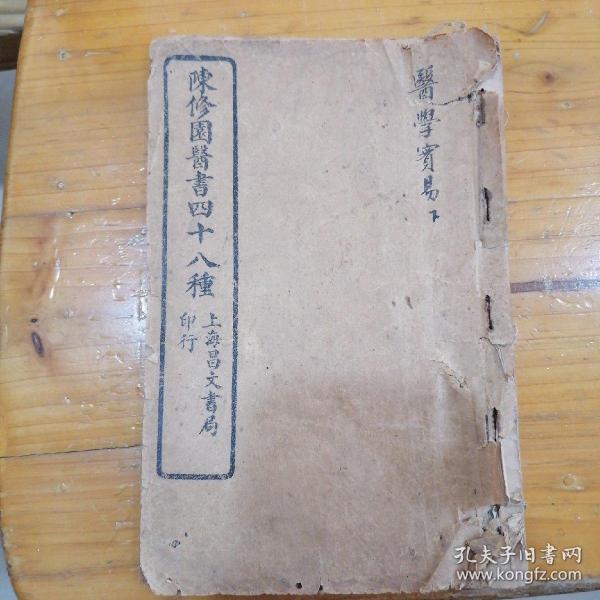 醫學實易下
陳修園醫書四十八種
上海昌文書局
印行
孔夫子旧书网
www.kongfz.com